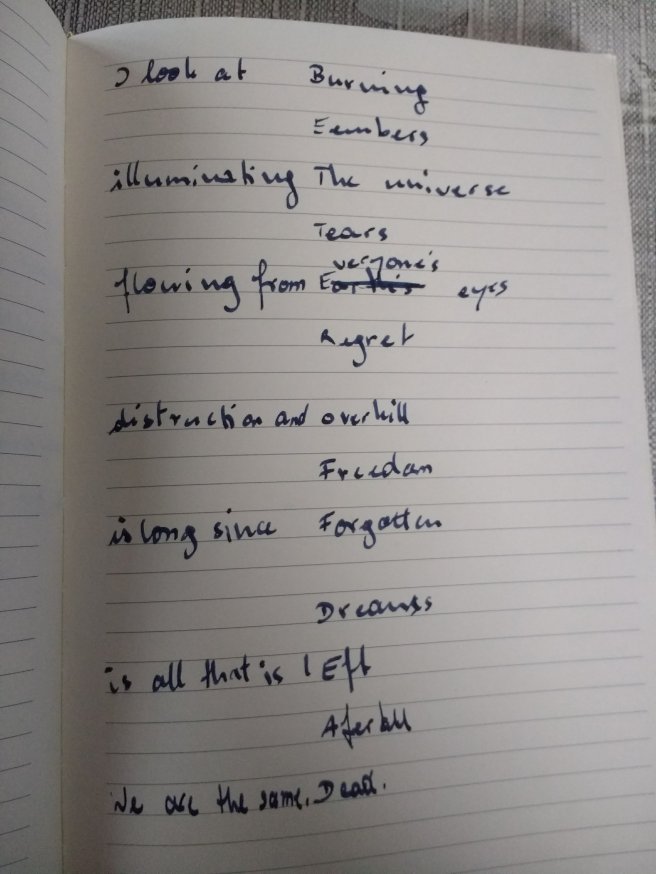 I look at Burning
Eembers
illuminating The universe
Tears
veryone's
flowing from E eyes
Regret
distruction and overkill
Freedom
is long since Forgotten
Dreams
is all that is lEft
Aferall
We are the same. Dead.